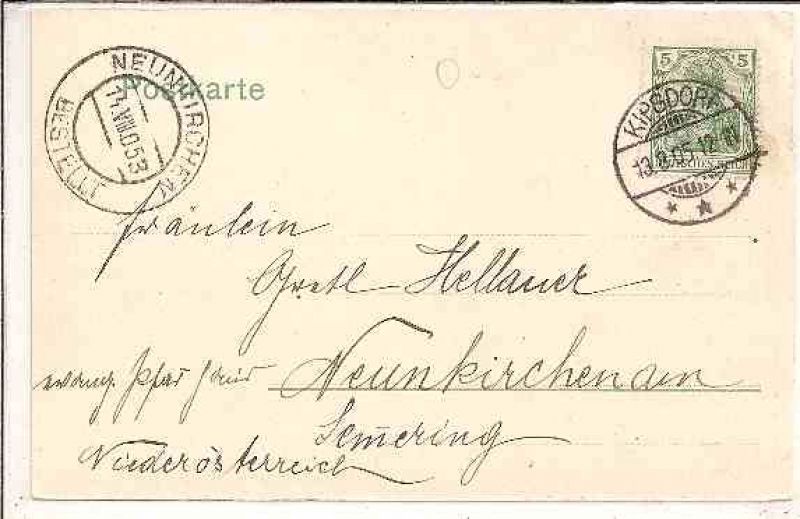 Postkarte
NEUNKIRCHEN
14 VIII 05 3
BESTELLT
5 5
DEUTSCHES REICH
KIPSDORF
13.8.05. 12
Fräulein
Gretl Hellauer
evang. Pfarhaus Neunkirchen am
Semering
Niederösterreich